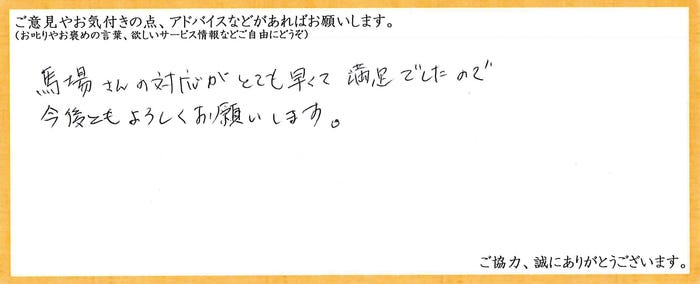 ご意見やお気付きの点、アドバイスなどがあればお願いします。
(お叱りやお褒めの言葉、欲しいサービス情報などご自由にどうぞ)
馬場さんの対応がとても早くて満足でしたので
今後ともよろしくお願いします。
ご協力、誠にありがとうございます。